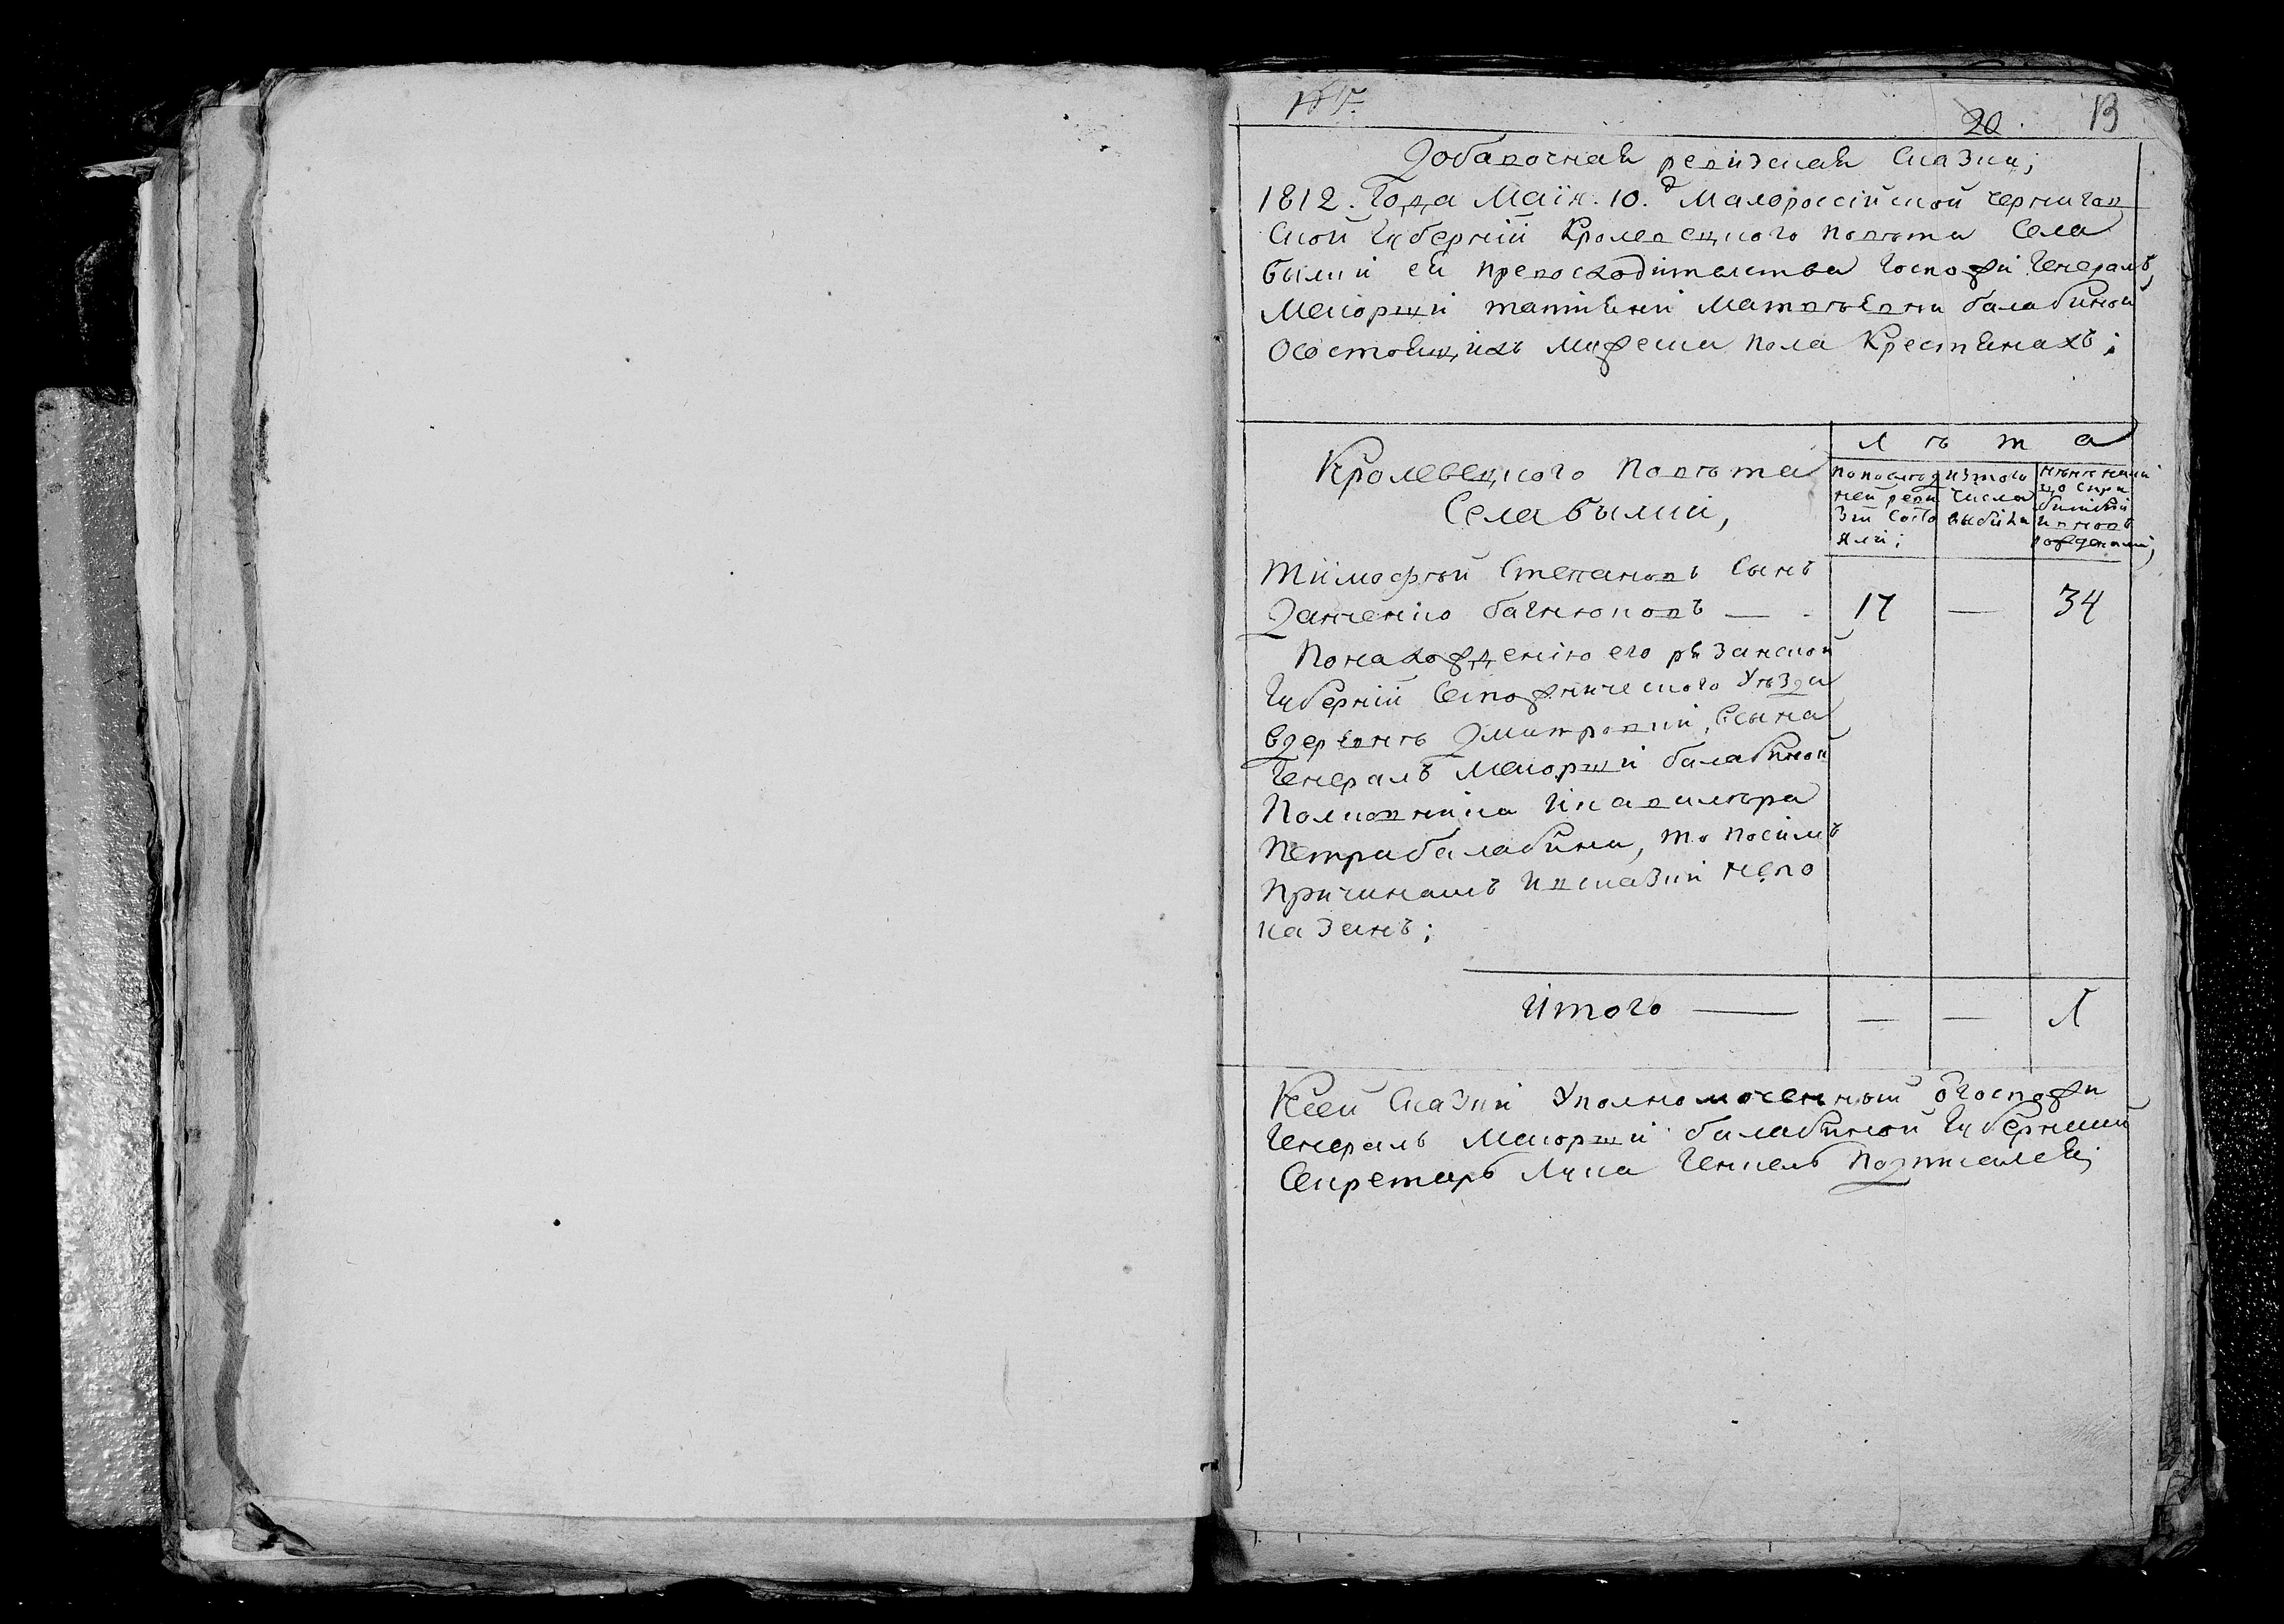 20. 13
Добавочная ревизская Сказка;
1812. Года Маія. 10.д Малороссійской чернигов
ской губерніи Кролевецкого повѣта Села
быліи ей превосходителства госпожи генералъ,
Маіорши татіяни Матвѣевни балабиной
О состоящихъ мужеска пола Крестянахъ;
Л ѣ т а
Кролевецкого повѣта
Села быліи,
по послѣд
ней реви
зіи состо
яли;
изтого
числа
выбыло
нынѣ на ли
цо съ при
былими
и вновь
рожденими,
Тимофѣй Степановъ Сынъ
Данченко багнюковъ — 17 — 34
По нахожденію его рязанской
губерніи Сапожническаго Уѣзда
в деревнѣ Дмитровки, Усына
генералъ Маіорши балабиной
Полковника и кавалѣра
петра балабина, то по симъ
причинамъ и в сказки не по
казанъ;
итого — — — 1
К сей Сказки Уполномоченный о госпожи
генералъ Маіорши балабиной губернский
Секретарь Лука генкель подписался;